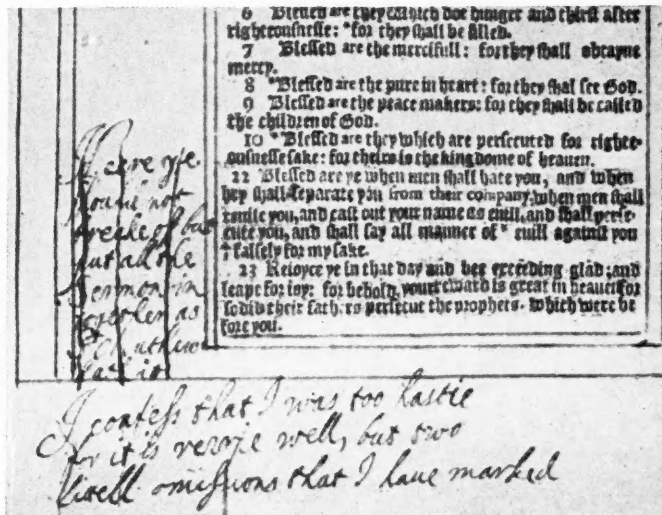 6 Blessed are they which doe hunger and thirst after
righteousnesse: *for they shall be filled.
7 Blessed are the mercifull: for they shall obtayne
mercy.
8 *Blessed are the pure in heart: for they shal see God.
9 Blessed are the peace makers: for they shall be called
the children of God.
10 *Blessed are they which are persecuted for righte-
ousnesse sake: for theirs is the kingdome of heauen.
22 Blessed are ye when men shall hate you, and when
they shall separate you from their company, when men shall
reuile you, and cast out your name as euill, and shall perse-
cute you, and shall say all manner of * euill against you
† falsely for my sake.
23 Reioyce ye in that day and bee exceeding glad: and
leape for ioy: for behold, your reward is great in heauen for
so did their fathers persecut the prophets. which were be
fore you.
heere yee
should not
breake of but
put all the
sermons in
together as
hath it
I confess that I was too hastie
for it is verrie well, but two
litell omissions that I haue marked